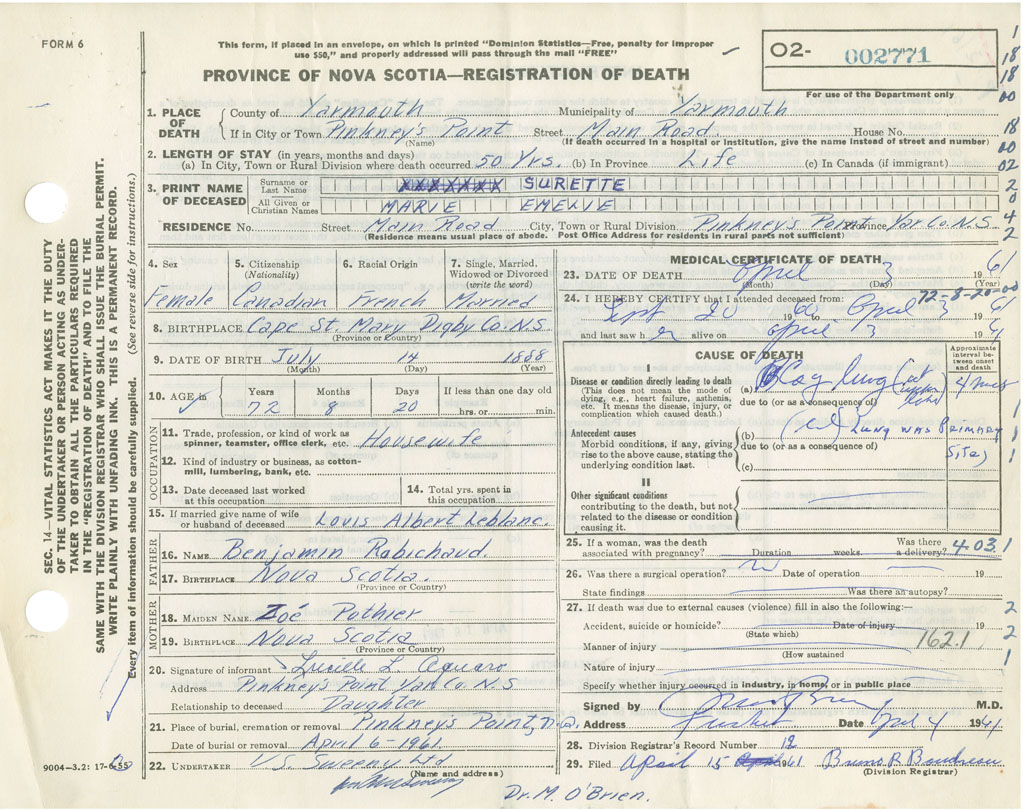 FORM 6
This form, if placed in an envelope, on which is printed "Dominion Statistics—Free, penalty for improper
use $50," and properly addressed will pass through the mail "FREE"
PROVINCE OF NOVA SCOTIA—REGISTRATION OF DEATH
O2- 002771
For use of the Department only
1. PLACE OF DEATH County of Yarmouth Municipality of Yarmouth
If in City or Town Pinkney's Point Street Main Road House No.
(Name) (If death occurred in a hospital or institution, give the name instead of street and number)
2. LENGTH OF STAY (in years, months and days)
(a) In City, Town or Rural Division where death occurred 50 Yrs. (b) In Province Life (c) In Canada (if immigrant)
3. PRINT NAME OF DECEASED Surname or Last Name XXXXXXX SURETTE
All Given or Christian Names MARIE EMELIE
RESIDENCE No. Street Main Road City, Town or Rural Division Pinkney's Point Province Yar Co. N.S.
(Residence means usual place of abode. Post Office Address for residents in rural parts not sufficient)
4. Sex Female
5. Citizenship (Nationality) Canadian
6. Racial Origin French
7. Single, Married, Widowed or Divorced (write the word) Married
8. BIRTHPLACE Cape St. Mary Digby Co. N.S.
(Province or Country)
9. DATE OF BIRTH July 14 1888
(Month) (Day) (Year)
10. AGE in Years 72 Months 8 Days 20 If less than one day old hrs. or min.
OCCUPATION
11. Trade, profession, or kind of work as
spinner, teamster, office clerk, etc. Housewife
12. Kind of industry or business, as cotton-
mill, lumbering, bank, etc.
13. Date deceased last worked
at this occupation
14. Total yrs. spent in
this occupation
15. If married give name of wife
or husband of deceased Louis Albert Leblanc.
FATHER
16. NAME Benjamin Robichaud.
17. BIRTHPLACE Nova Scotia.
(Province or Country)
MOTHER
18. MAIDEN NAME Zoé Pothier
19. BIRTHPLACE Nova Scotia
(Province or Country)
20. Signature of informant Lucille L
Address Pinkney's Point Yar Co. N.S
Relationship to deceased Daughter
21. Place of burial, cremation or removal Pinkney's Point, N.S.
Date of burial or removal April 6 - 1961.
22. UNDERTAKER V.S. Sweeny Ltd
(Name and address)
MEDICAL CERTIFICATE OF DEATH
23. DATE OF DEATH April 3 1961
(Month) (Day) (Year)
72-8-20-00
24. I HEREBY CERTIFY that I attended deceased from:
Sept 20 1960 April 3 1961
and last saw her alive on April 3 1961
CAUSE OF DEATH
Approximate interval between onset and death
I
Disease or condition directly leading to death
(This does not mean the mode of
dying, e.g., heart failure, asthenia,
etc. It means the disease, injury, or
complication which caused death.)
(a) Ca of lung
due to (or as a consequence of)
Antecedent causes
Morbid conditions, if any, giving
rise to the above cause, stating the
underlying condition last.
(b) LUNG WAS PRIMARY
due to (or as a consequence of)
(c) SITE)
II
Other significant conditions
contributing to the death, but not
related to the disease or condition
causing it.
25. If a woman, was the death
associated with pregnancy? Duration weeks. Was there a delivery? 403.1
26. Was there a surgical operation? Date of operation 19
State findings Was there an autopsy?
27. If death was due to external causes (violence) fill in also the following:—
Accident, suicide or homicide? Date of injury 19
(State which)
Manner of injury 162.1
(How sustained)
Nature of injury
Specify whether injury occurred in industry, in home, or in public place
Signed by M.D.
Address Date April 4 1961.
28. Division Registrar's Record Number 12
29. Filed April 15 1961
(Division Registrar)
Dr. M. O'Brien.
SEC. 14—VITAL STATISTICS ACT MAKES IT THE DUTY
OF THE UNDERTAKER OR PERSON ACTING AS UNDER-
TAKER TO OBTAIN ALL THE PARTICULARS REQUIRED
IN THE "REGISTRATION OF DEATH" AND TO FILE THE
SAME WITH THE DIVISION REGISTRAR WHO SHALL ISSUE THE BURIAL PERMIT.
WRITE PLAINLY WITH UNFADING INK. THIS IS A PERMANENT RECORD.
Every item of information should be carefully supplied. (See reverse side for instructions.)
1
18
18
00
18
00
02
2
0
4
2
1
1
2
2
1